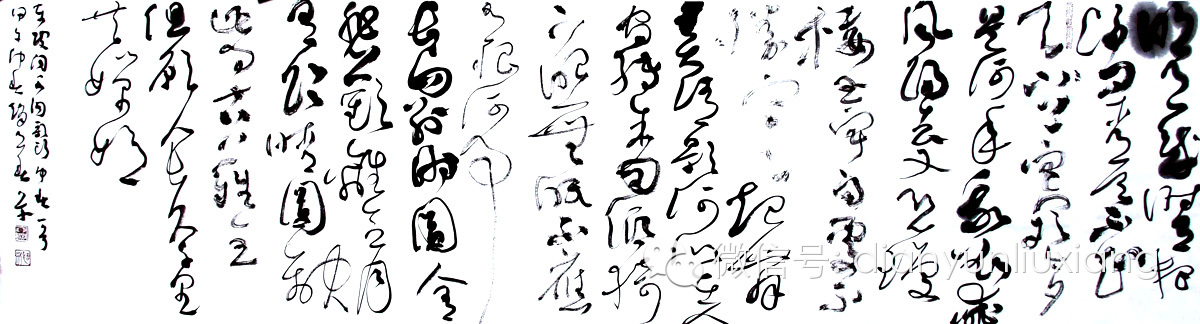 明月幾時有把
酒问青天不知
天上宫阙今夕
是何年我欲乘
风归去又恐瓊
楼玉宇高处不
勝寒起舞
弄清影何似在人
间转朱阁低绮
户照无眠不應
有恨何事
長向别时圆人
悲歡離合月
有阴晴圓缺
此事古難全
但願人長久千里
共嬋娟
微信号: dianyunliuxiang